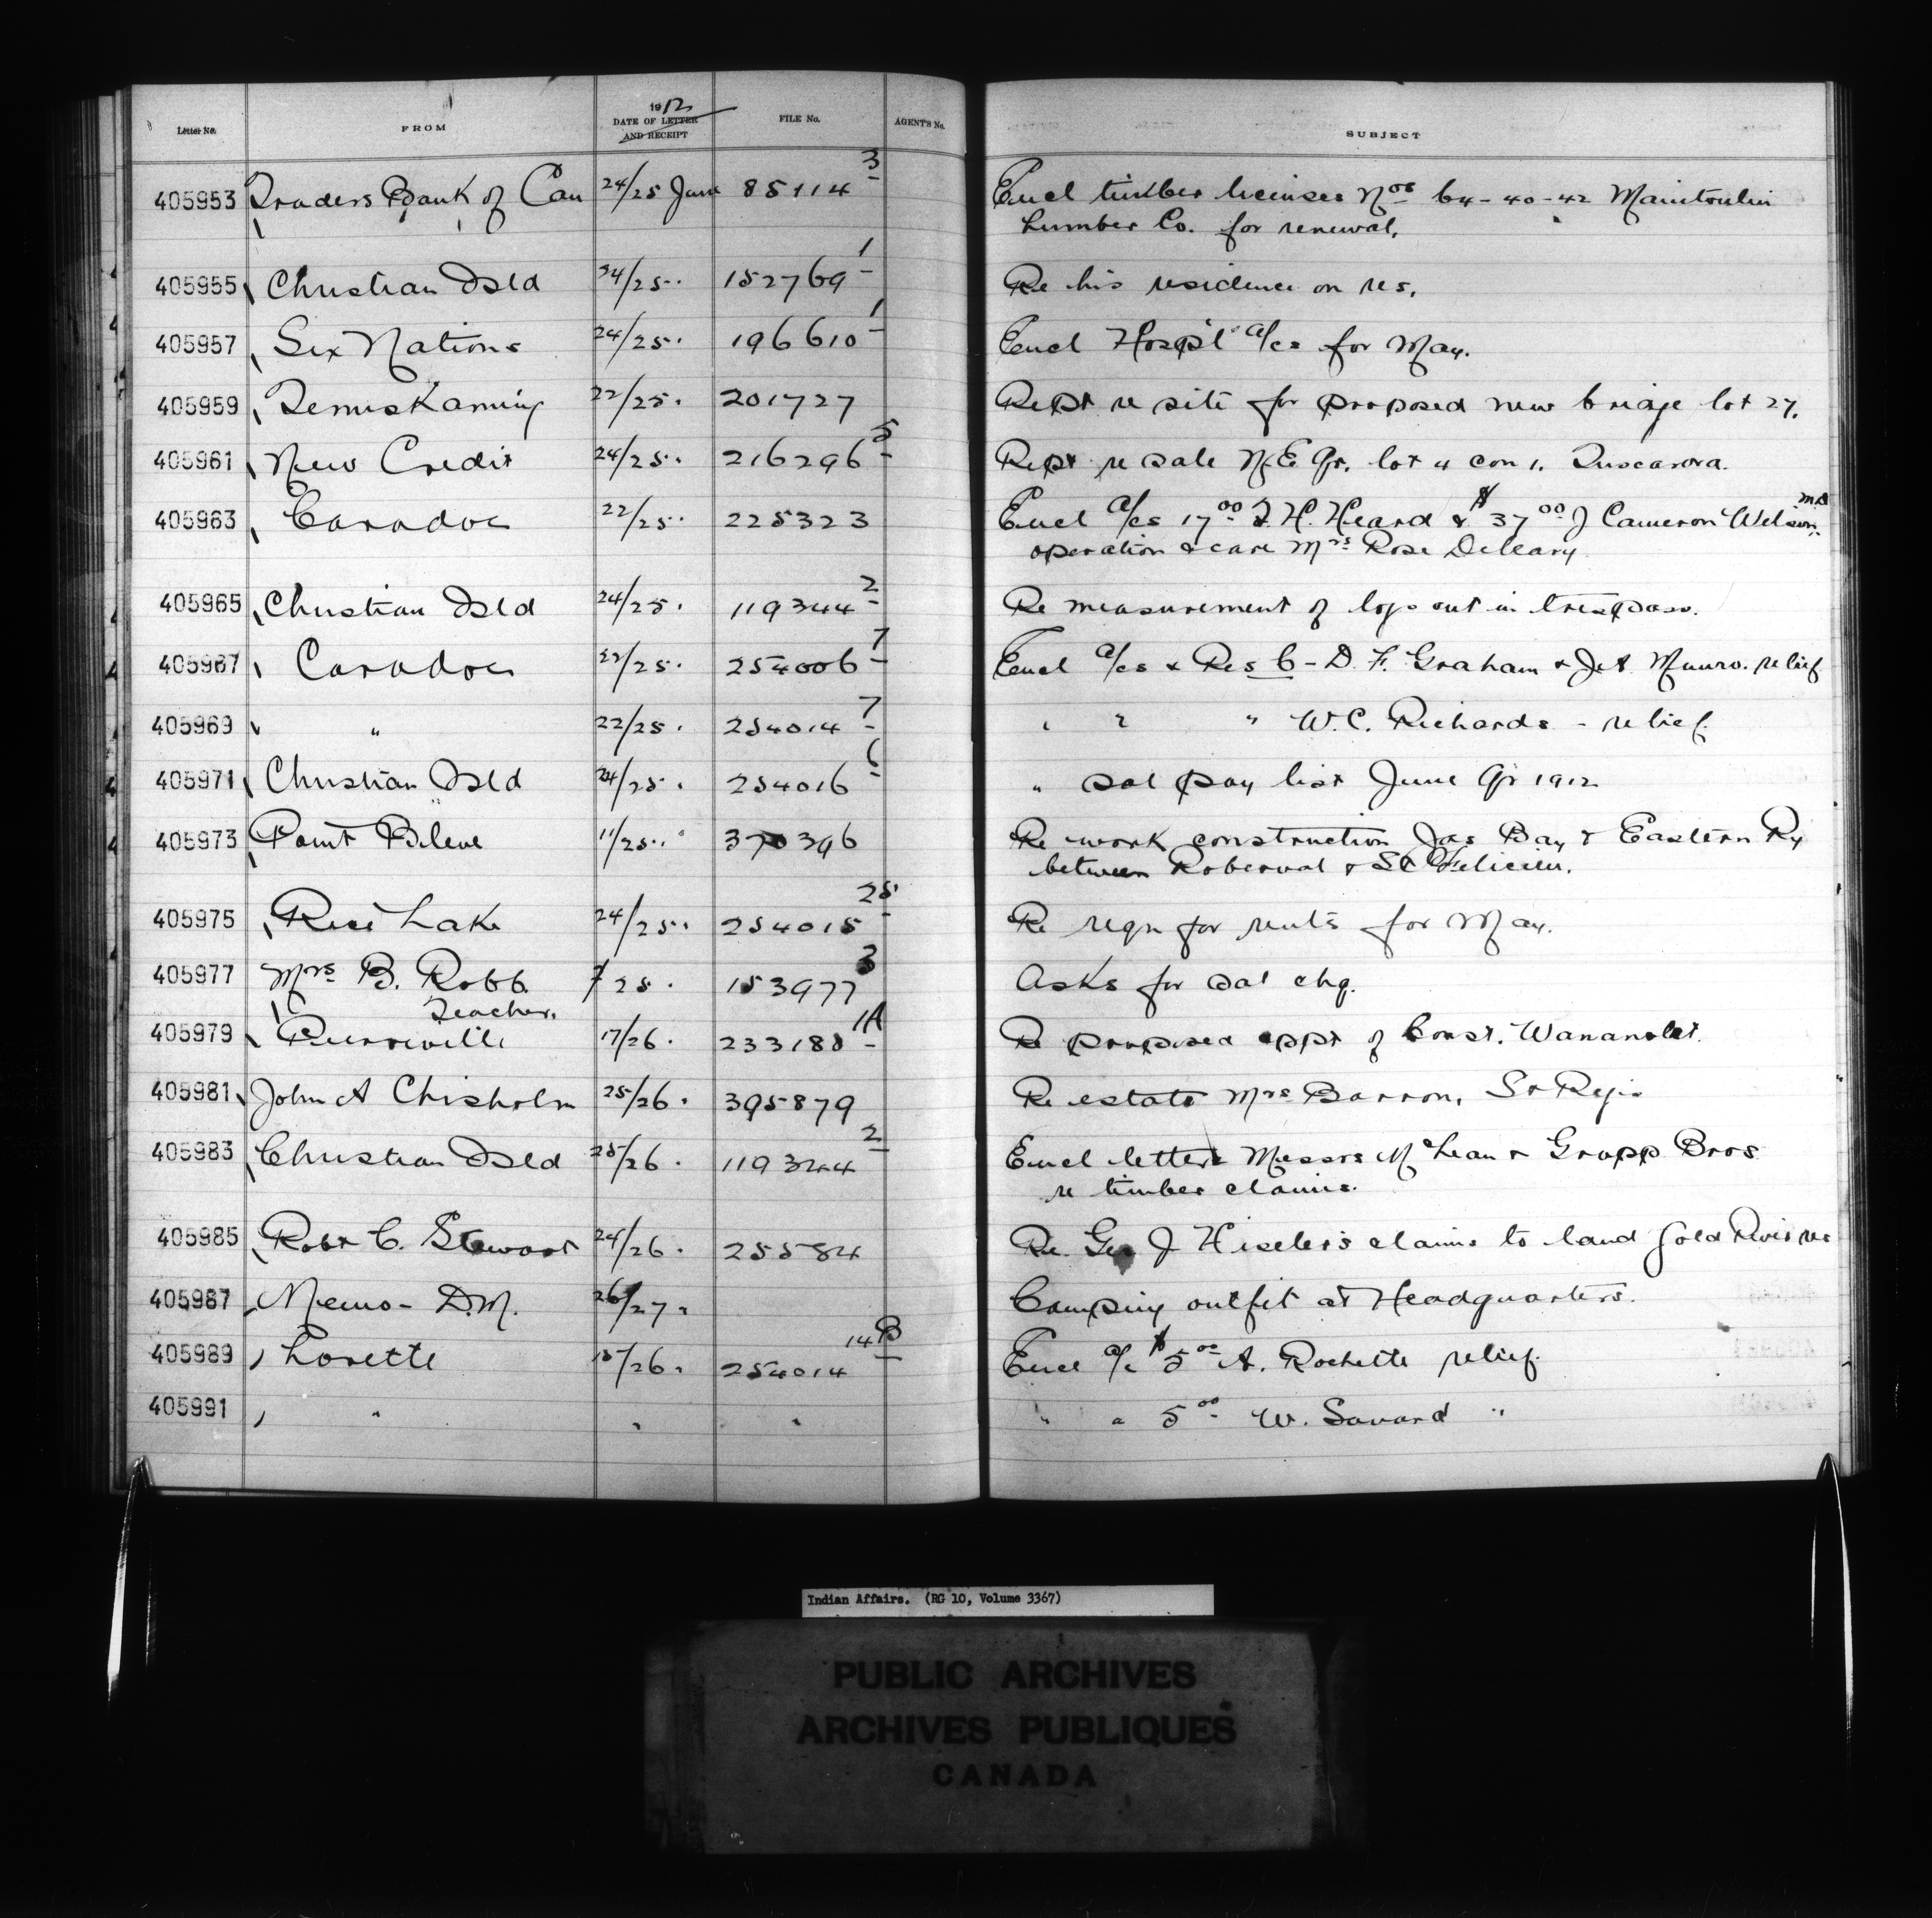 Letter No. FROM 1912 DATE OF LETTER AND RECEIPT FILE No. AGENT'S No. SUBJECT
405953 Traders Bank of Can 24/25 June 85114 3 Encl timber licenses Nos 64-40-42 Manitoulin
Lumber Co. for renewal.
405955 Christian Isld 24/25 " 152769 1 Re his residence on res.
405957 Six Nations 24/25 " 196610 1 Encl Hosp'l a/cs for May.
405959 Temiskaming 22/25 " 201727 Rept re site for proposed new bridge lot 27.
405961 New Credit 24/25 " 216296 5 Rept re sale N.E. Qr. lot 4 con 1. Tuscarora.
405963 Caradoc 22/25 " 225323 Encl a/cs 17.00 T. H. Heard & $37.00 J Cameron Wilson M.D.
operation & care Mrs Rose Deleary
405965 Christian Isld 24/25 " 119344 2 Re measurement of logs cut in trespass.
405967 Caradoc 22/25 " 254006 7 Encl a/cs & Res C- D. F. Graham & Munro. relief
405969 " 22/25 " 254014 7 " " " W. C. Richards - relief.
405971 Christian Isld 24/25 " 254016 6 " sal pay list June Qr 1912
405973 Point Bleue 11/25 " 370396 Re work construction Jas Bay & Eastern Ry
between Roberval & St Felicien.
405975 Rice Lake 24/25 " 254015 25 Re reqn for rents for May.
405977 Mrs B. Robb 7/25 " 153977 3 Asks for sal chq.
Teacher.
405979 Pierreville 17/26 " 233188 1A Re proposed appt of Const. Wananolet.
405981 John A Chisholm 25/26 " 395879 Re estate Mrs Barron, St Regis
405983 Christian Isld 25/26 " 119344 2 Encl letters Messrs McLean & Grapp Bros
re timber claims.
405985 Robt C. Stewart 24/26 " 25584 Re. Geo J Hiseler's claims to land Gold River res
405987 Memo - D.M. 26/27 " Camping outfit at Headquarters.
405989 Lorette 15/26 " 254014 14B Encl a/c $5.00 A. Rochette relief.
405991 " " " " " 5.00 W. Savard "
Indian Affairs. (RG 10, Volume 3367)
PUBLIC ARCHIVES
ARCHIVES PUBLIQUES
CANADA